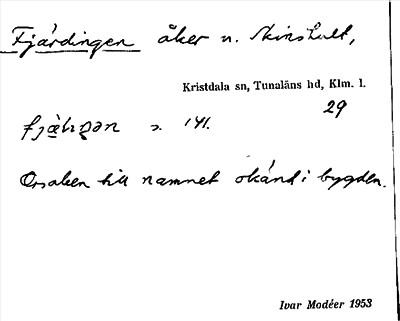 Fjärdingen åker n. Skinshult,
Kristdala sn, Tunaläns hd, Klm. l.
29
s. 141.
Orsaken till namnet okänd i bygden.
Ivar Modéer 1953